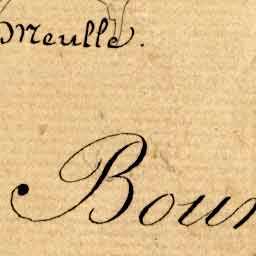 Meulle.
Bour